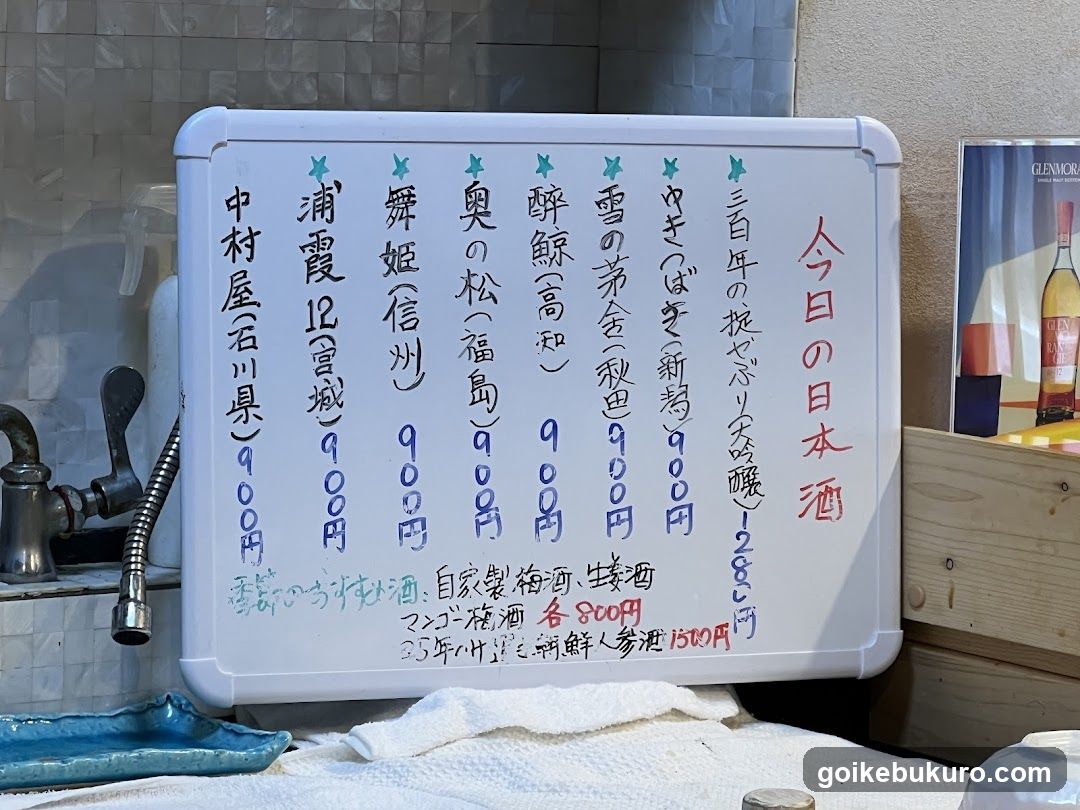 今日の日本酒
三百年の掟やぶり(大吟醸)1280円
ゆきつばき(新潟)900円
雪の茅舎(秋田)900円
酔鯨(高知)900円
奥の松(福島)900円
舞姫(信州)900円
浦霞12(宮城)900円
中村屋(石川県)900円
季節のおすすめ酒: 自家製梅酒、生姜酒
マンゴー梅酒 各800円
35年 朝鮮人参酒 1500円
GLENMORA
SINGLE MALT
GLEN
MO
RAN
GIE
12
goikebukuro.com